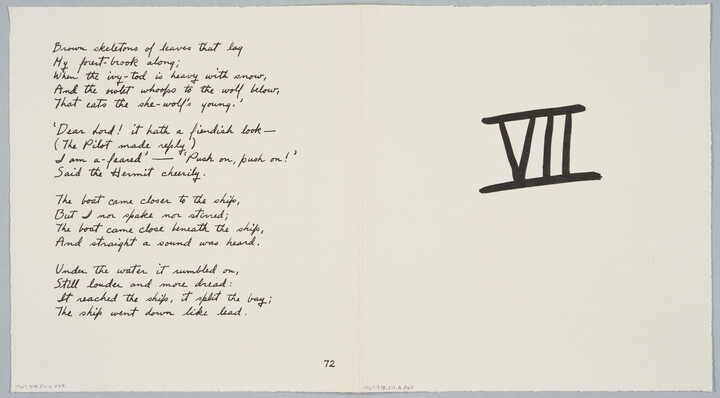 Brown skeletons of leaves that lag
My forest-brook along;
When the ivy-tod is heavy with snow,
And the owlet whoops to the wolf below,
That eats the she-wolf's young.'
'Dear Lord! it hath a fiendish look—
(The Pilot made reply)
I am a-feared' — 'Push on, push on!'
Said the Hermit cheerily.
The boat came closer to the ship,
But I nor spake nor stirred;
The boat came close beneath the ship,
And straight a sound was heard.
Under the water it rumbled on,
Still louder and more dread:
It reached the ship, it split the bay;
The ship went down like lead.
72
VII